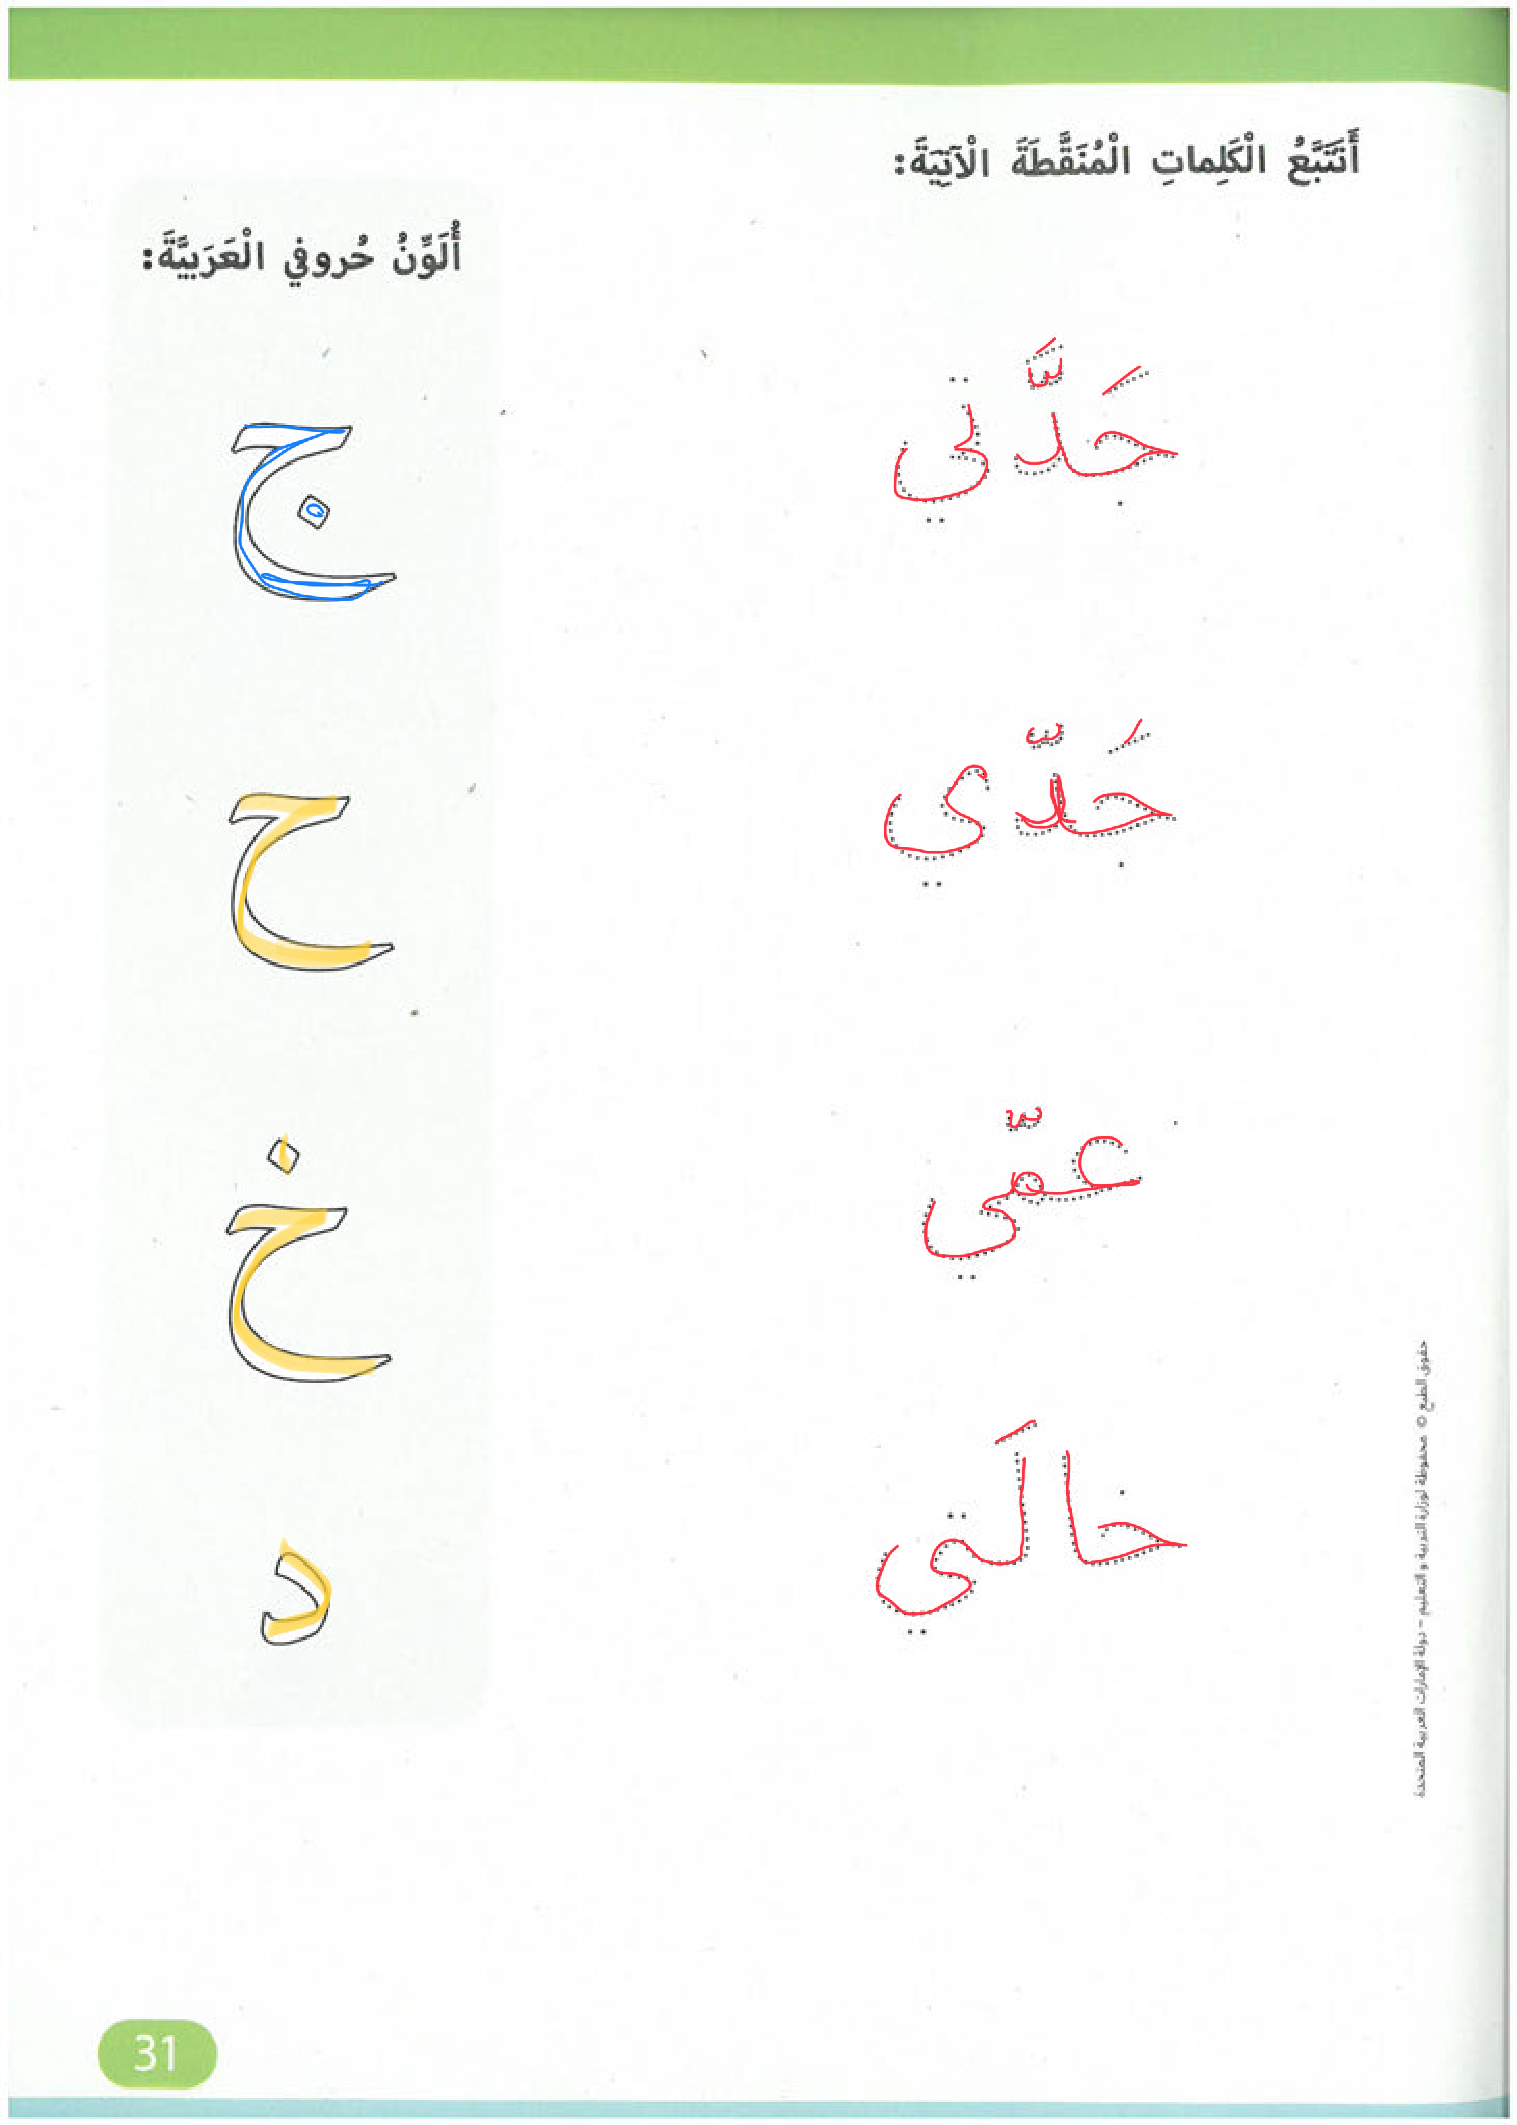 أَتَتَبَّعُ الْكَلِماتِ الْمُنَقَّطَةَ الْآتِيَةَ:
أُلَوِّنُ حُروفي الْعَرَبِيَّةَ:
جَدَّتي
جَدّي
عمّي
خالَتي
ج
ح
خ
د
حقوق الطبع © محفوظة لوزارة التربية و التعليم - دولة الإمارات العربية المتحدة
31